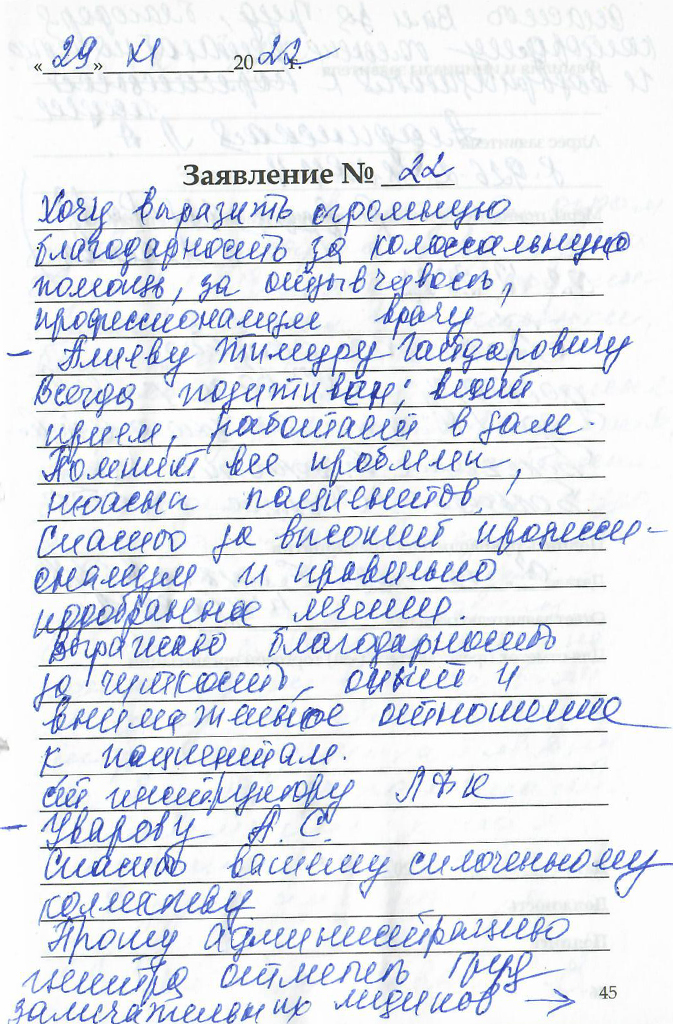 «29» XI 2022 г.
Заявление № 22
Хочу выразить огромную
благодарность за колоссальную
помощь, за отзывчевость,
профессионализм врачу
- Алиеву Тимуру Гайдаровичу
Всегда позитиван; ведет
прием, работает в зале.
Помнит все проблемы,
нюансы пациентов.
Спасибо за высокий професси-
онализм и правильно
подобранное лечение.
Выражаю благодарность
за чуткость, опыт и
внимательное отношение
к пациентам.
инструктору ЛФК
- Уварову А. С.
Спасибо вашему сплоченному
коллективу
Прошу администрацию
центра отметить труд
замечательных медиков →
45